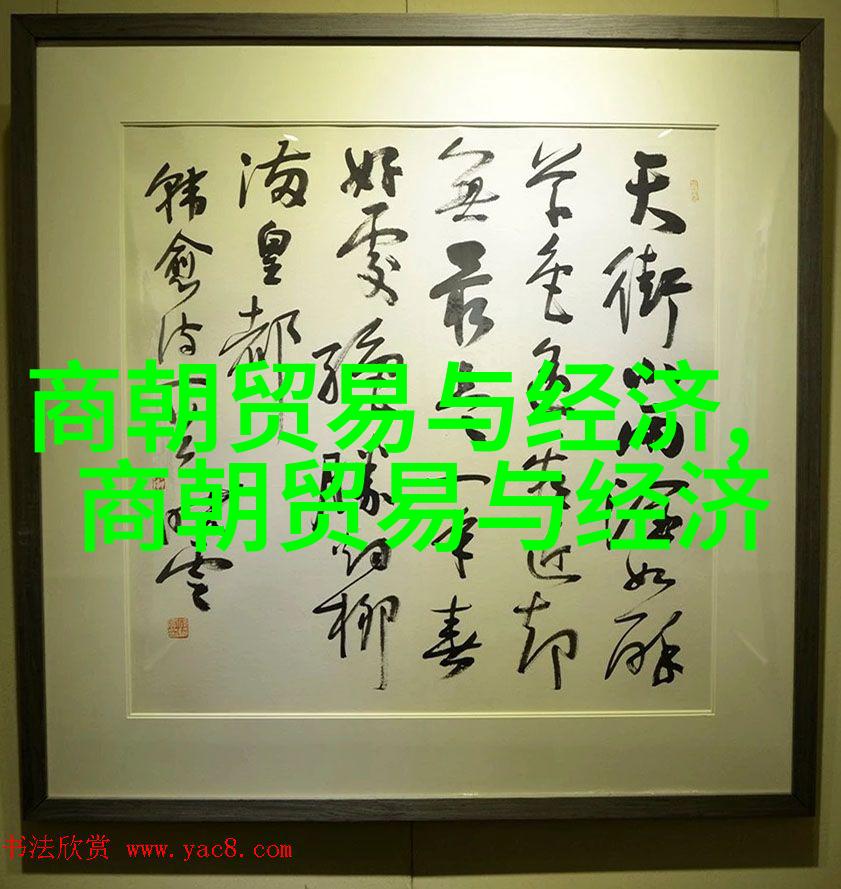 天街小雨潤如酥
草色遥看近却
無最是一年春
好處絶勝烟柳
满皇都
韩愈诗
商朝贸易与经济,
商朝贸易与经济
书法欣赏 www.yac8.com